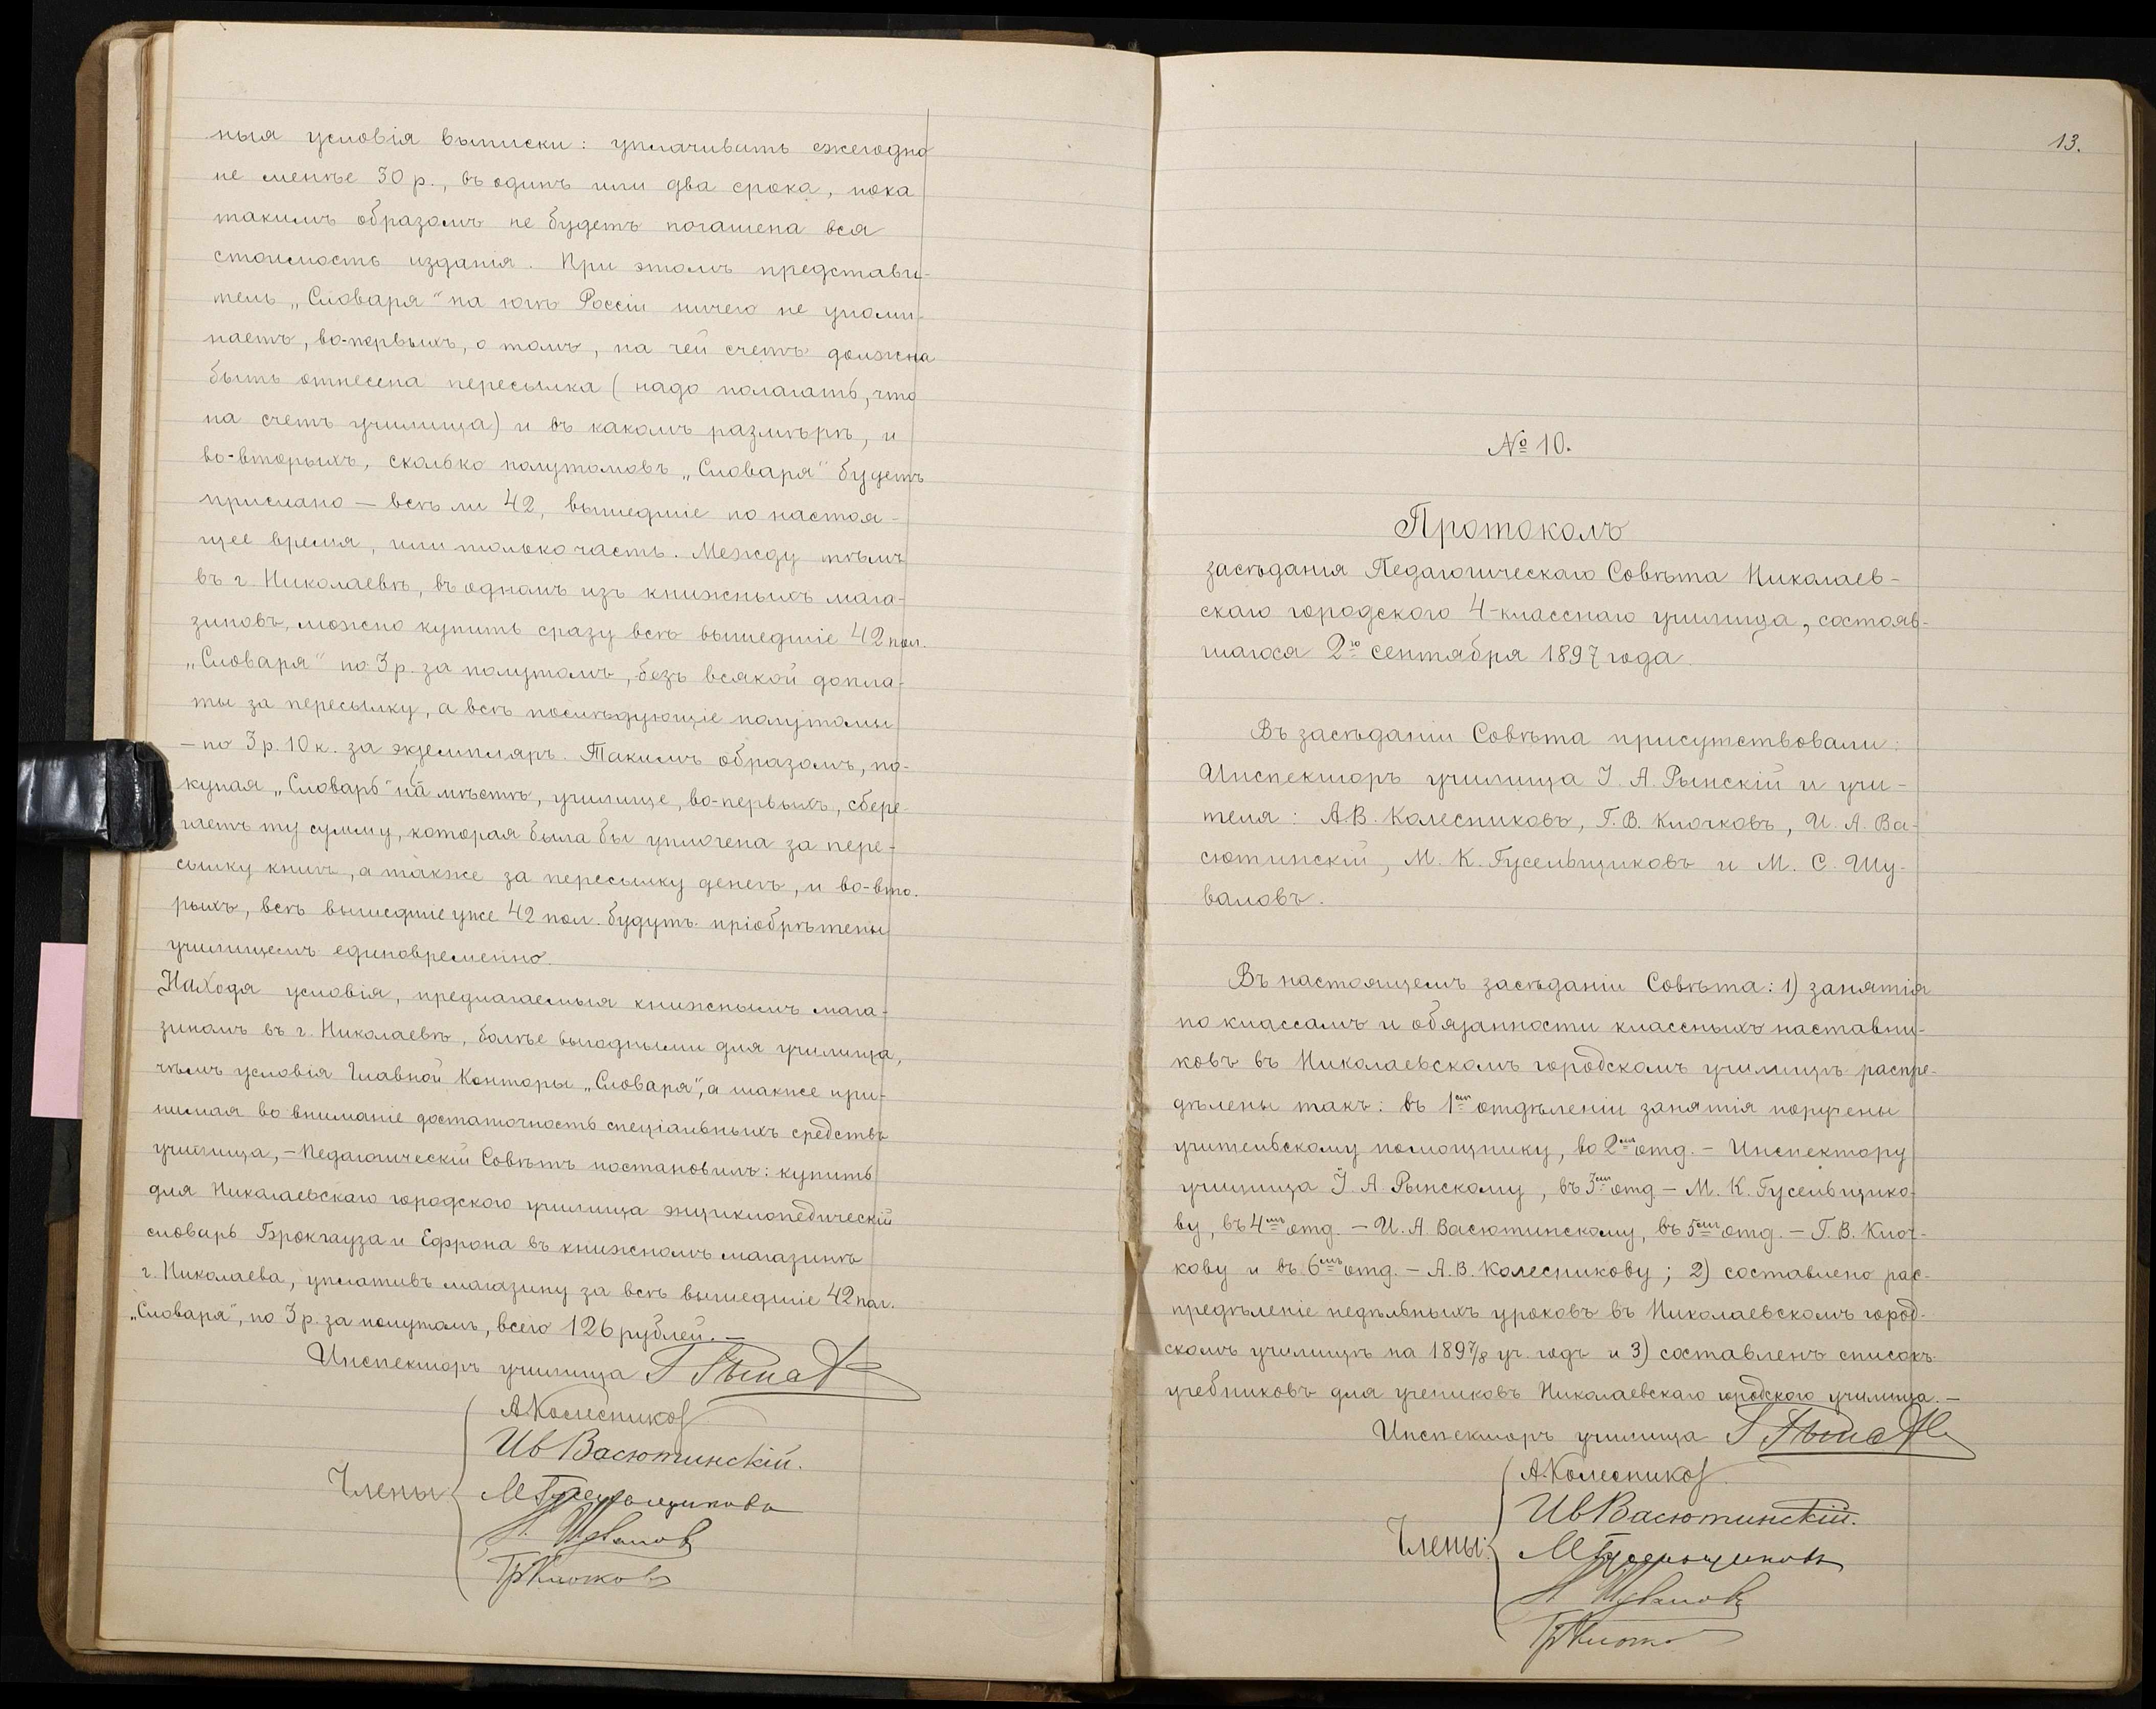 ныя условія выписки: уплачивать ежегодно
не менѣе 30 р., въ одинъ или два срока, пока
такимъ образомъ не будетъ погашена вся
стоимость изданія. При этомъ представи-
тель „Словаря“ на югѣ Россіи ничего не упоми-
наетъ, во-первыхъ, о томъ, на чей счетъ должна
быть отнесена пересылка (надо полагать, что
на счетъ училища) и въ какомъ размѣрѣ, и
во-вторыхъ, сколько полутомовъ „Словаря“ будетъ
прислано — всѣ ли 42, вышедшіе по настоя-
щее время, или только часть. Между тѣмъ
въ г. Николаевѣ, въ одномъ изъ книжныхъ мага-
зиновъ, можно купить сразу всѣ вышедшіе 42 пол.
„Словаря“ по 3 р. за полутомъ, безъ всякой допла-
ты за пересылку, а всѣ послѣдующіе полутомы
— по 3 р. 10 к. за экземпляръ. Такимъ образомъ, по-
купая „Словарь“ на мѣстѣ, училище, во-первыхъ, сбере-
гаетъ ту сумму, которая была бы уплочена за пере-
сылку книгъ, а также за пересылку денегъ, и во-вто-
рыхъ, всѣ вышедшіе уже 42 пол. будутъ пріобрѣтены
училищемъ единовременно.
Находя условія, предлагаемыя книжнымъ мага-
зиномъ въ г. Николаевѣ, болѣе выгодными для училища,
чѣмъ условія Главной Конторы „Словаря“, а также при-
нимая во вниманіе достаточность спеціальныхъ средствъ
училища, — Педагогическій Совѣтъ постановилъ: купить
для Николаевскаго городского училища энциклопедическій
словарь Брокгауза и Ефрона въ книжномъ магазинѣ
г. Николаева, уплативъ магазину за всѣ вышедшіе 42 пол.
„Словаря“, по 3 р. за полутомъ, всего 126 рублей. —
Инспекторъ училища
А. Колесников
Ив Васютинскій.
Члены М Гусельщиковъ
Шувалов
Гр Клочковъ
13.
№ 10.
Протоколъ
засѣданія Педагогическаго Совѣта Николаев-
скаго городского 4-класснаго училища, состояв-
шагося 2го сентября 1897 года.
Въ засѣданіи Совѣта присутствовали:
Инспекторъ училища І. А. Рынскій и учи-
теля: А. В. Колесниковъ, Г. В. Клочковъ, И. А. Ва-
сютинскій, М. К. Гусельщиковъ и М. С. Шу-
валовъ.
Въ настоящемъ засѣданіи Совѣта: 1) занятія
по классамъ и обязанности классныхъ наставни-
ковъ въ Николаевскомъ городскомъ училищѣ распре-
дѣлены такъ: въ 1омъ отдѣленіи занятія поручены
учительскому помощнику, во 2омъ отд. — Инспектору
училища І. А. Рынскому, въ 3емъ отд. — М. К. Гусельщико-
ву, въ 4омъ отд. — И. А. Васютинскому, въ 5омъ отд. — Г. В. Клоч-
кову и въ 6омъ отд. — А. В. Колесникову; 2) составлено рас-
предѣленіе недѣльныхъ уроковъ въ Николаевскомъ город-
скомъ училищѣ на 1897/8 уч. годъ и 3) составленъ списокъ
учебниковъ для учениковъ Николаевскаго городского училища. —
Инспекторъ училища
А. Колесников
Ив Васютинскій.
Члены: М Гусельщиковъ
Шувалов
Гр Клочко